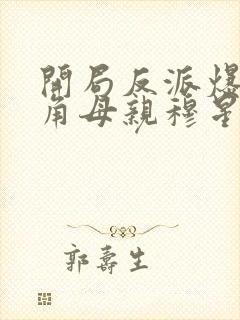 開局反派爆
角母親穆星
郭壽生